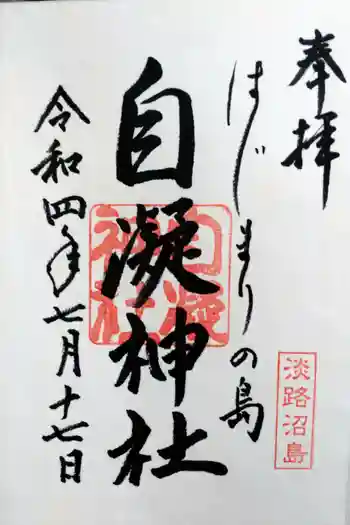 奉拝
はじまりの島
自凝神社
令和四年七月十七日
自凝神社
淡路沼島